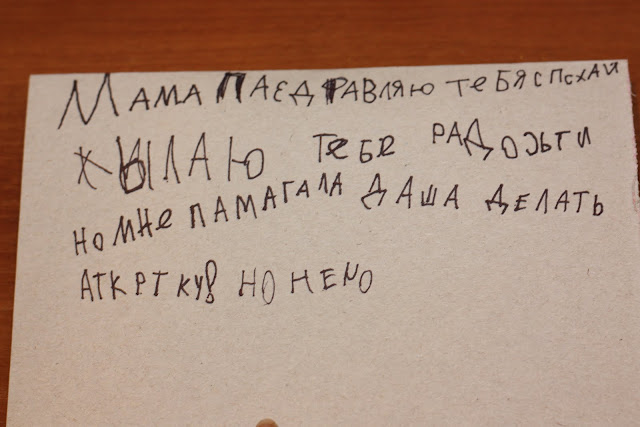 МАМА ПАЕДРАВЛЯЮ ТЕБЯ С ПСХАЙ
ЖЫЛАЮ ТЕБЕ РАДОСЬТИ
НО МНЕ ПАМАГАЛА ДАША ДЕЛАТЬ
АТКРТКУ! НО НЕМО